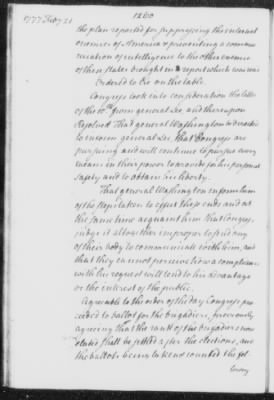 1777 Feby 21
the plan reported for suppressing the internal
enemies of America & preventing a commu
nication of intelligence to the other enemies
of these states brought in report which was
Ordered to lie on the table.
Congress took into consideration the letter
of the 10th from general Lee and thereupon
Resolved That general Washington be directed
to inform general Lee that Congress are
pursuing and will continue to pursue every
means in their power to provide for his personal
safety and to obtain his liberty.
That general Washington inform him
of the steps taken to effect these ends and at
the same time acquaint him that Congress
judge it altogether improper to send any
of their body to communicate with him, and
that they cannot perceive how a compliance
with his request will tend to his advantage
or the interest of the public.
Agreeable to the order of the day Congress pro
ceeded to ballot for the brigadiers, previously
agreeing that the rank of the brigadiers now
elected shall be settled after the elections, and
the ballots being taken & counted the fol